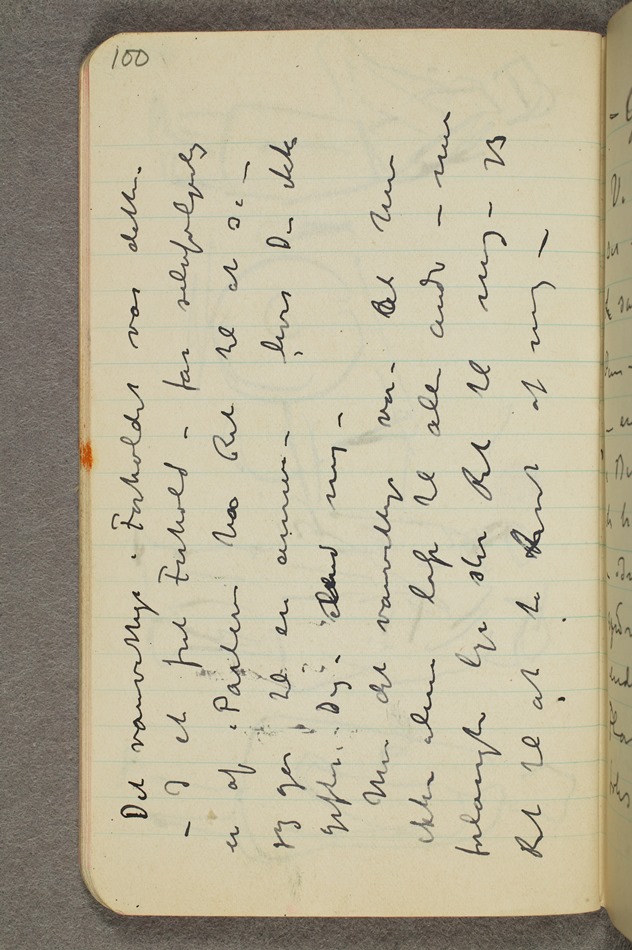 100
Det vanvittige i Forholdet var dette.
– I et frit Forhold – har selvfølgelig
en af Parterne Ret til at si –
jeg gær til en annen – hvis Du ikke
gifter Dig med mig –
Men det vanvittige var – At hun
ikke alene løb til alle andre – men
forlangte lige stor Ret til mig – så
Ret til at ta Livet af mig –